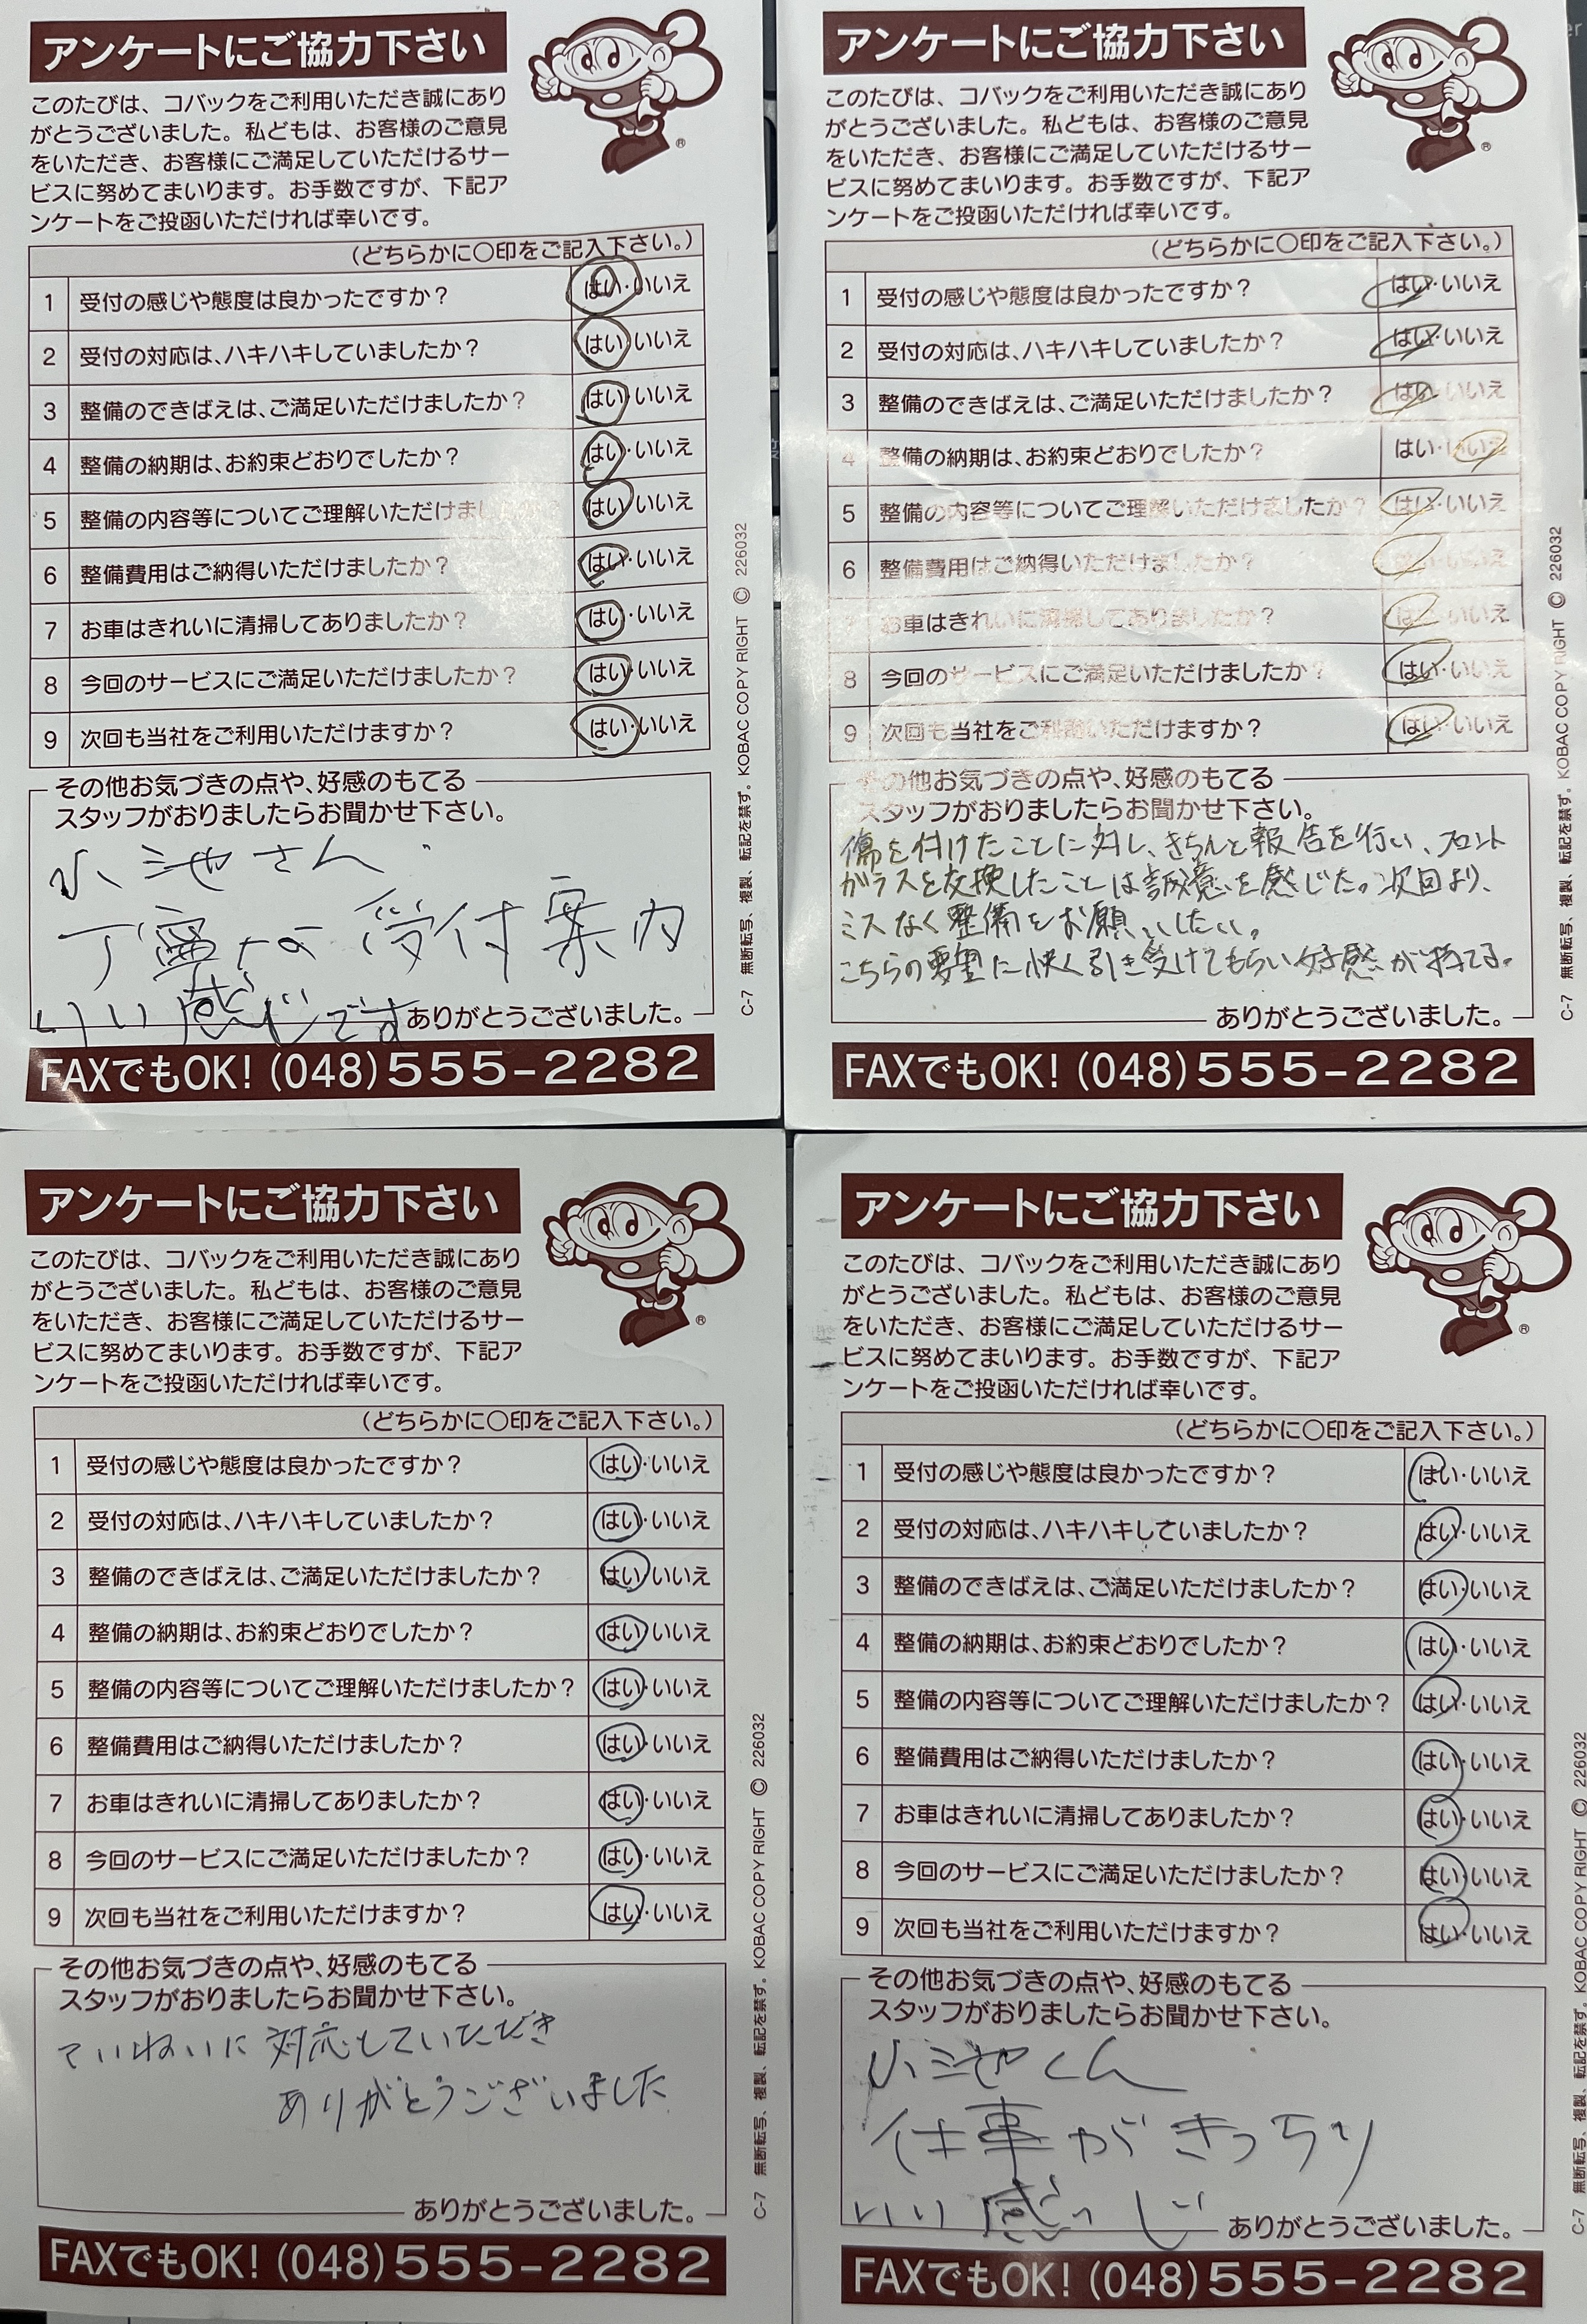 アンケートにご協力下さい
このたびは、コバックをご利用いただき誠にあり
がとうございました。私どもは、お客様のご意見
をいただき、お客様にご満足していただけるサー
ビスに努めてまいります。お手数ですが、下記ア
ンケートをご投函いただければ幸いです。
®
(どちらかに〇印をご記入下さい。)
1 受付の感じや態度は良かったですか? はい・いいえ
2 受付の対応は、ハキハキしていましたか? はい・いいえ
3 整備のできばえは、ご満足いただけましたか? はい・いいえ
4 整備の納期は、お約束どおりでしたか? はい・いいえ
5 整備の内容等についてご理解いただけまし はい・いいえ
6 整備費用はご納得いただけましたか? はい・いいえ
7 お車はきれいに清掃してありましたか? はい・いいえ
8 今回のサービスにご満足いただけましたか? はい・いいえ
9 次回も当社をご利用いただけますか? はい・いいえ
その他お気づきの点や、好感のもてる
スタッフがおりましたらお聞かせ下さい。
小池さん
丁寧な受付案内
いい感じです
ありがとうございました。
FAXでもOK! (048)555-2282
C-7 無断転写、複製、転記を禁ず。KOBAC COPY RIGHT © 226032
アンケートにご協力下さい
このたびは、コバックをご利用いただき誠にあり
がとうございました。私どもは、お客様のご意見
をいただき、お客様にご満足していただけるサー
ビスに努めてまいります。お手数ですが、下記ア
ンケートをご投函いただければ幸いです。
®
(どちらかに〇印をご記入下さい。)
1 受付の感じや態度は良かったですか? はい・いいえ
2 受付の対応は、ハキハキしていましたか? はい・いいえ
3 整備のできばえは、ご満足いただけましたか? はい・いいえ
4 整備の納期は、お約束どおりでしたか? はい・いいえ
5 整備の内容等についてご理解いただけましたか? はい・いいえ
6 整備費用はご納得いただけましたか? はい・いいえ
7 お車はきれいに清掃してありましたか? はい・いいえ
8 今回のサービスにご満足いただけましたか? はい・いいえ
9 次回も当社をご利用いただけますか? はい・いいえ
その他お気づきの点や、好感のもてる
スタッフがおりましたらお聞かせ下さい。
傷を付けたことに対し、きちんと報告を行い、フロント
ガラスを交換したことは誠意を感じた。次回より、
ミスなく整備をお願いしたい。
こちらの要望に快く引き受けてもらい好感が持てる。
ありがとうございました。
FAXでもOK! (048)555-2282
C-7 無断転写、複製、転記を禁ず。KOBAC COPY RIGHT © 226032
アンケートにご協力下さい
このたびは、コバックをご利用いただき誠にあり
がとうございました。私どもは、お客様のご意見
をいただき、お客様にご満足していただけるサー
ビスに努めてまいります。お手数ですが、下記ア
ンケートをご投函いただければ幸いです。
®
(どちらかに〇印をご記入下さい。)
1 受付の感じや態度は良かったですか? はい・いいえ
2 受付の対応は、ハキハキしていましたか? はい・いいえ
3 整備のできばえは、ご満足いただけましたか? はい・いいえ
4 整備の納期は、お約束どおりでしたか? はい・いいえ
5 整備の内容等についてご理解いただけましたか? はい・いいえ
6 整備費用はご納得いただけましたか? はい・いいえ
7 お車はきれいに清掃してありましたか? はい・いいえ
8 今回のサービスにご満足いただけましたか? はい・いいえ
9 次回も当社をご利用いただけますか? はい・いいえ
その他お気づきの点や、好感のもてる
スタッフがおりましたらお聞かせ下さい。
ていねいに対応していただき
ありがとうございました
ありがとうございました。
FAXでもOK! (048)555-2282
C-7 無断転写、複製、転記を禁ず。KOBAC COPY RIGHT © 226032
アンケートにご協力下さい
このたびは、コバックをご利用いただき誠にあり
がとうございました。私どもは、お客様のご意見
をいただき、お客様にご満足していただけるサー
ビスに努めてまいります。お手数ですが、下記ア
ンケートをご投函いただければ幸いです。
®
(どちらかに〇印をご記入下さい。)
1 受付の感じや態度は良かったですか? はい・いいえ
2 受付の対応は、ハキハキしていましたか? はい・いいえ
3 整備のできばえは、ご満足いただけましたか? はい・いいえ
4 整備の納期は、お約束どおりでしたか? はい・いいえ
5 整備の内容等についてご理解いただけましたか? はい・いいえ
6 整備費用はご納得いただけましたか? はい・いいえ
7 お車はきれいに清掃してありましたか? はい・いいえ
8 今回のサービスにご満足いただけましたか? はい・いいえ
9 次回も当社をご利用いただけますか? はい・いいえ
その他お気づきの点や、好感のもてる
スタッフがおりましたらお聞かせ下さい。
小池くん
仕事がきっちり
いい感っじ
ありがとうございました。
FAXでもOK! (048)555-2282
C-7 無断転写、複製、転記を禁ず。KOBAC COPY RIGHT © 226032